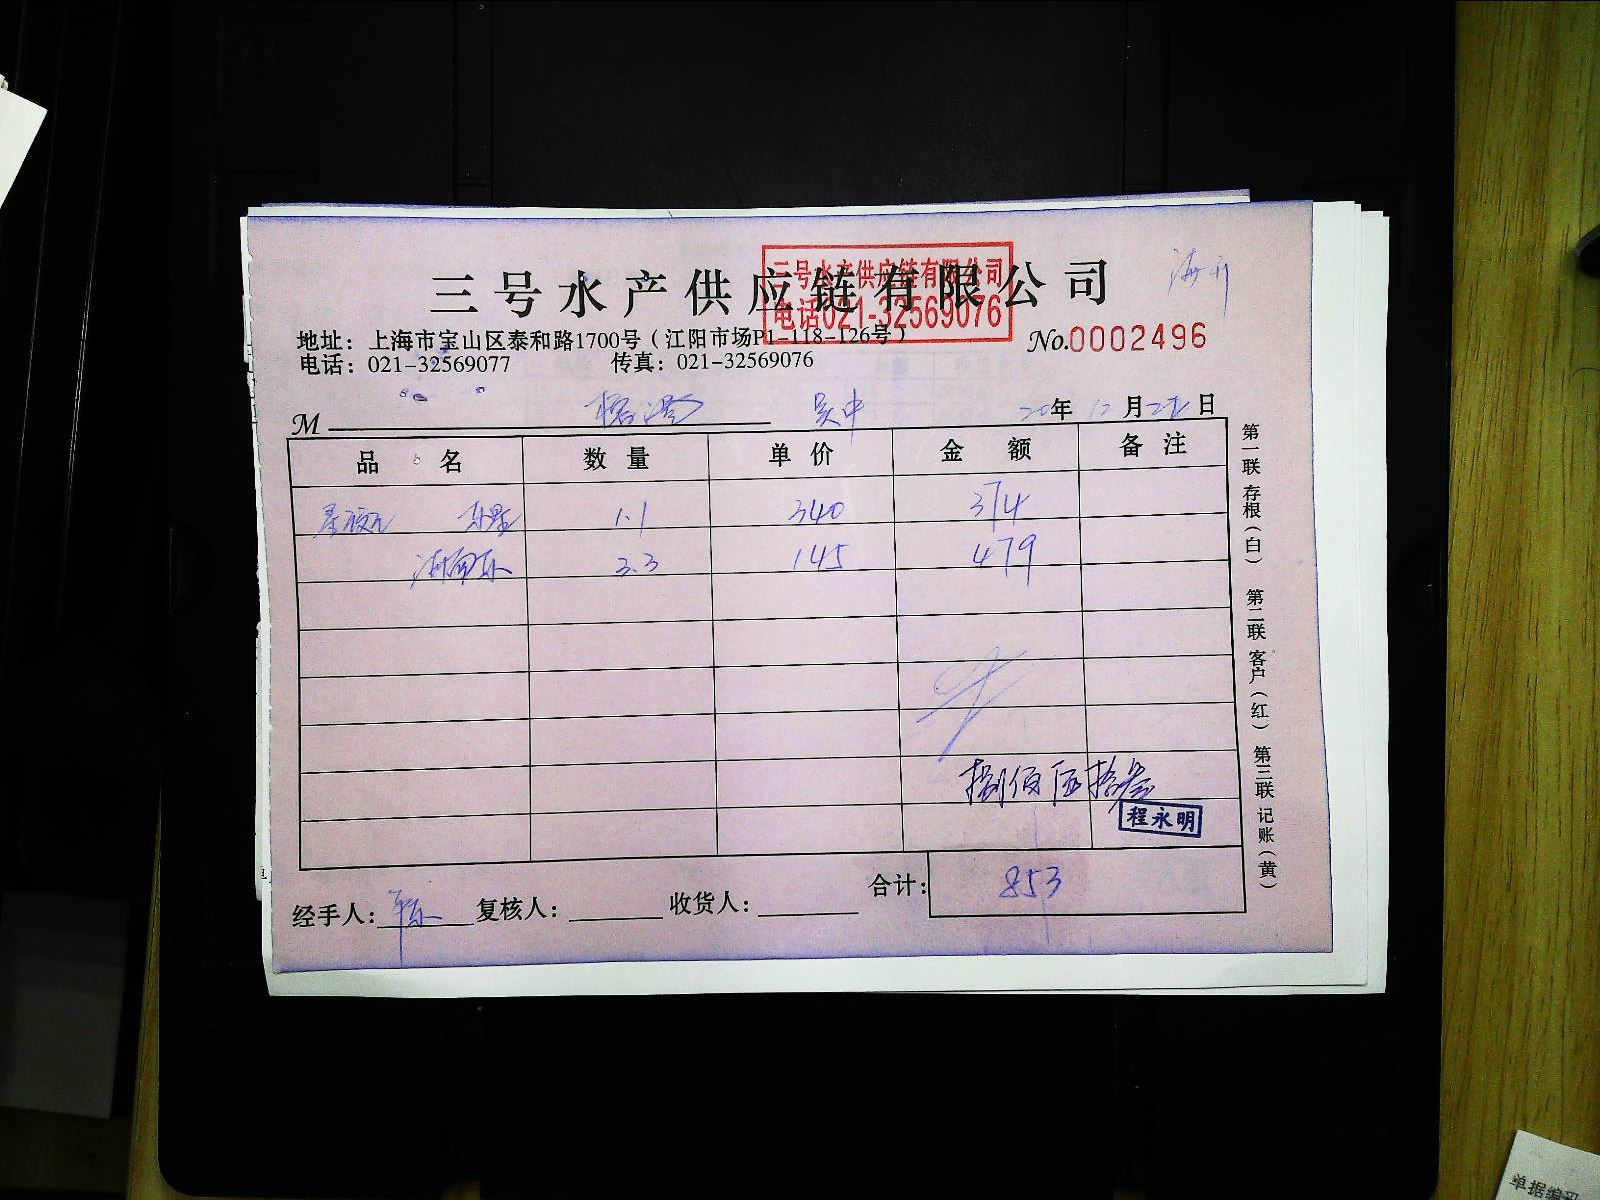 三号水产供应链有限公司
三号水产供应链有限公司
电话021-32569076
地址：上海市宝山区泰和路1700号（江阳市场P1-118-126号）
No.0002496
电话：021-32569077 传真：021-32569076
M 吴中 20年12月 日
品名 数量 单价 金额 备注
1.1 340 374
3.3 145 479
捌佰伍拾叁
程永明
合计：853
经手人： 复核人： 收货人：
第一联存根（白） 第二联客户（红） 第三联记账（黄）